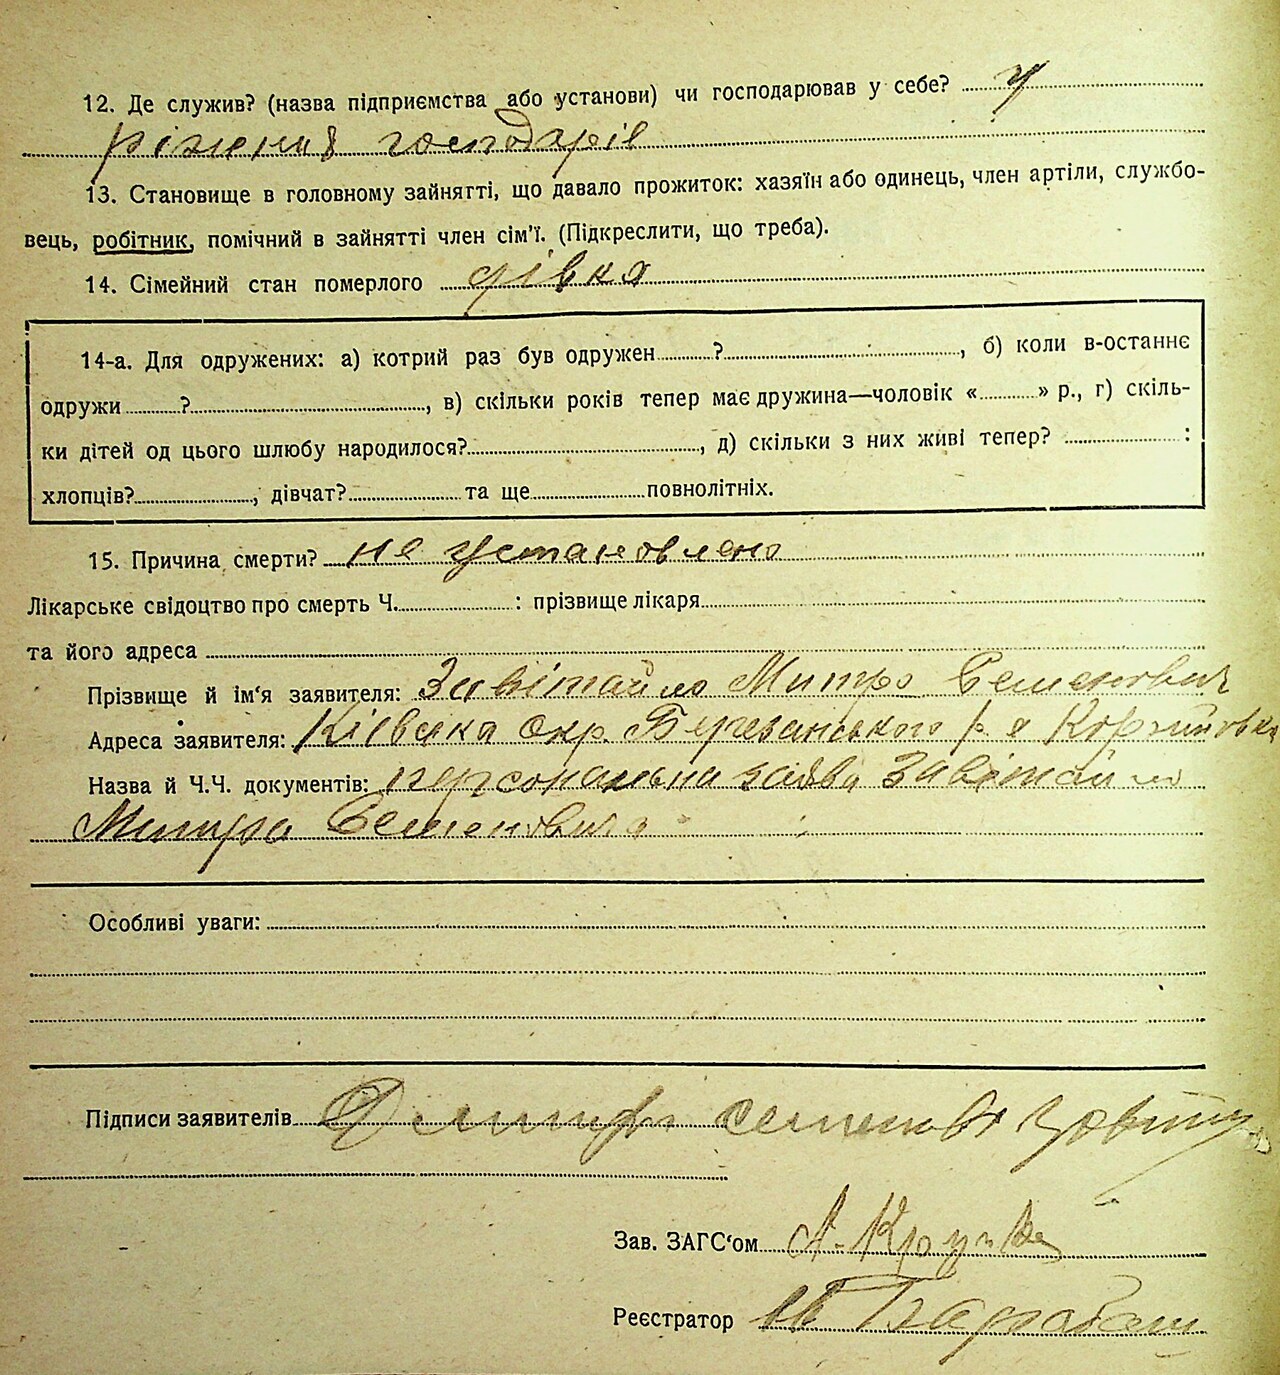 12. Де служив? (назва підприємства або установи) чи господарював у себе? у
різних господарів
13. Становище в головному зайнятті, що давало прожиток: хазяїн або одинець, член артіли, службо-
вець, робітник, помічний в зайнятті член сім’ї. (Підкреслити, що треба).
14. Сімейний стан померлого дівка
14-а. Для одружених: а) котрий раз був одружен ? , б) коли в-останнє
одружи ? , в) скільки років тепер має дружина—чоловік « » р., г) скіль-
ки дітей од цього шлюбу народилося? , д) скільки з них живі тепер? :
хлопців? , дівчат? та ще повнолітніх.
15. Причина смерти? не установлено
Лікарське свідоцтво про смерть Ч. : прізвище лікаря
та його адреса
Прізвище й ім‘я заявителя: Завітайло Митро Семенович
Адреса заявителя: Київска Окр. Березанського р.
Назва й Ч.Ч. документів: персональна заява Завітайло
Митра Семеновича
Особливі уваги:
Підписи заявителів
Зав. ЗАГС‘ом
Реєстратор Барабаш